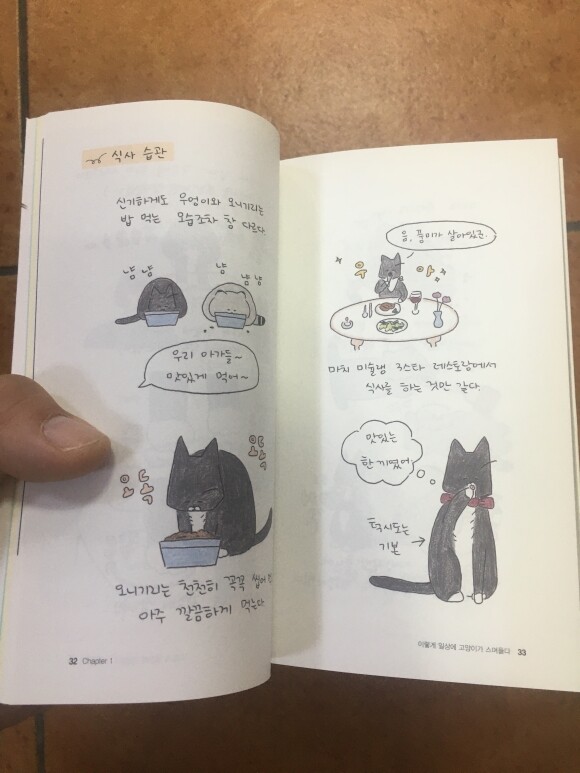 식사 습관
신기하게도 우엉이와 오니기리는
밥 먹는 모습조차 참 다르다
냠 냠
냠
냠 냠
우리 아가들~
맛있게 먹어~
오독
오독
오니기리는 천천히 꼭꼭 씹어
아주 깔끔하게 먹는다
32 Chapter 1
음, 풍미가 살아있군.
우 아
마치 미슐랭 3스타 레스토랑에서
식사를 하는 것만 같다.
맛있는
한 끼였어
턱시도는
기본
이렇게 일상에 고양이가 스며들다 33